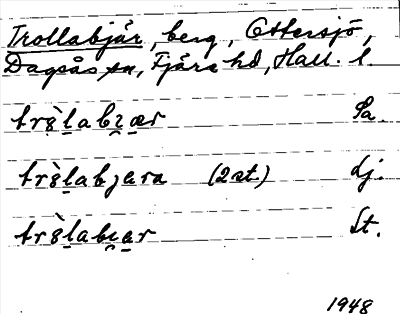 Trollabjär, berg, Ottersjö,
Dagsås sn, Fjäre hd, Hall. l.
trò̤labɪ̯ær Sa.
trò̤labȷara (2 st.) Lj.
trò̤labɪ̯ar St.
1948